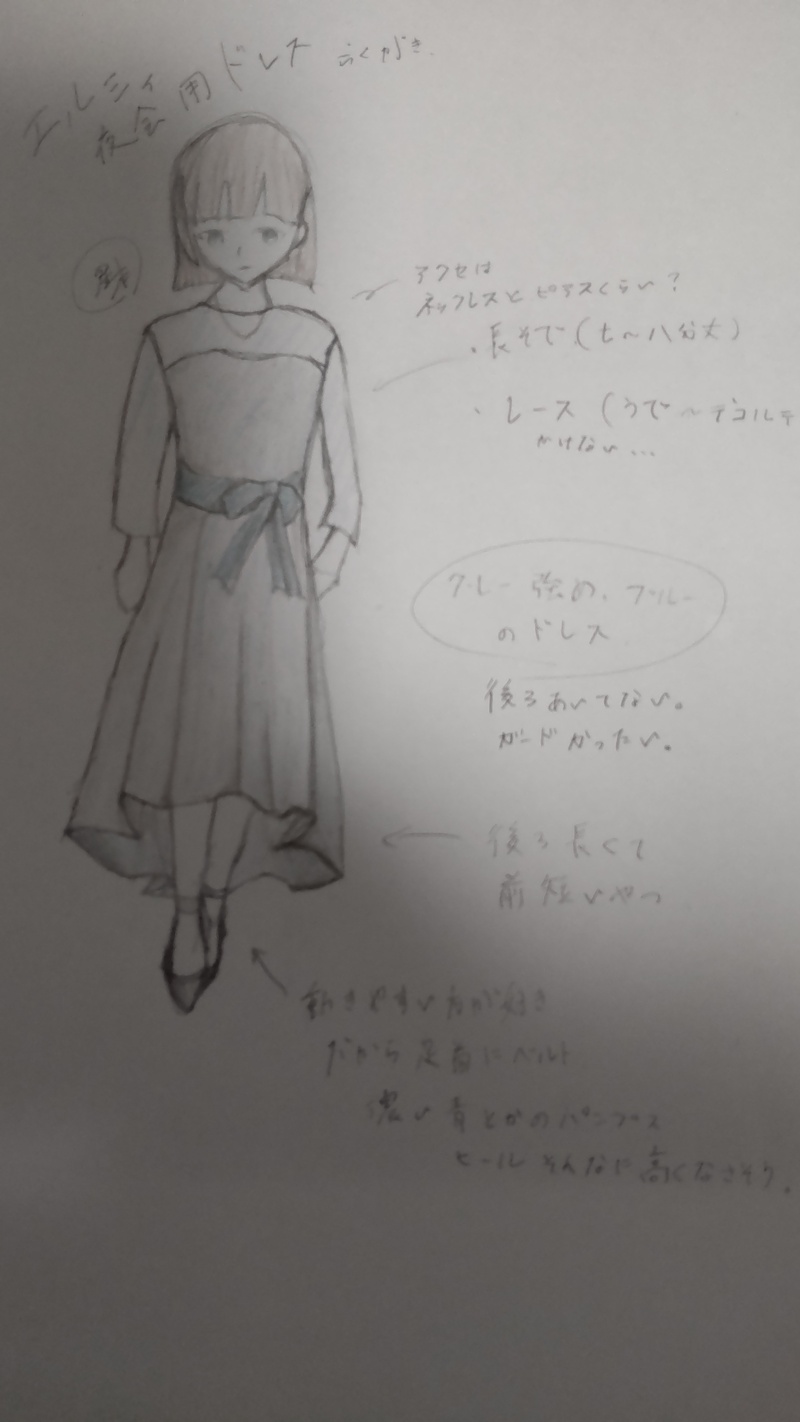 エルシィ
夜会用ドレス らくがき.
アクセは
ネックレスとピアスくらい?
・長そで(七〜八分丈)
・レース(うで〜デコルテ
かけない...
グレー強め、ブルー
のドレス
後ろあいてない。
ガードかったい。
後ろ長くて
前短いやつ
動きやすい方が好き
だから足首にベルト
濃い青とかのパンプス
ヒールそんなに高くなさそう。